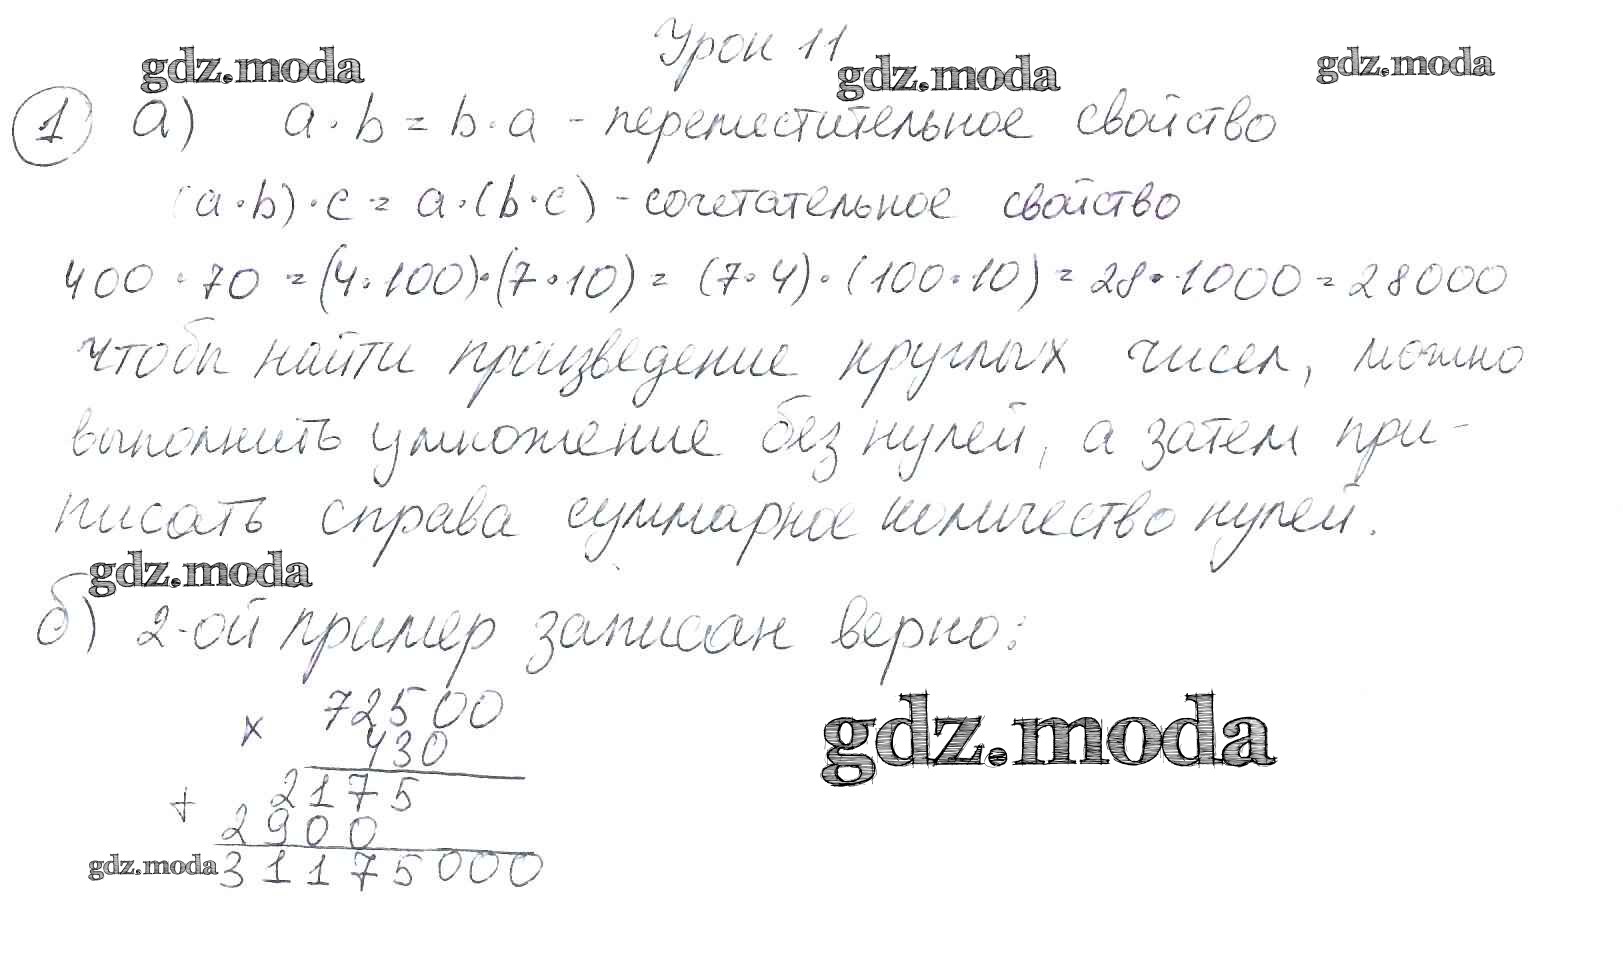 Урок 11
gdz.moda gdz.moda gdz.moda
1 а) a · b = b · a - переместительное свойство
(a · b) · c = a · (b · c) - сочетательное свойство
400 · 70 = (4 · 100) · (7 · 10) = (7 · 4) · (100 · 10) = 28 · 1000 = 28000
чтобы найти произведение круглых чисел, можно
выполнить умножение без нулей, а затем при-
писать справа суммарное количество нулей.
gdz.moda
б) 2-ой пример записан верно:
72500
×
430
gdz.moda
2175
+
2900
gdz.moda
31175000